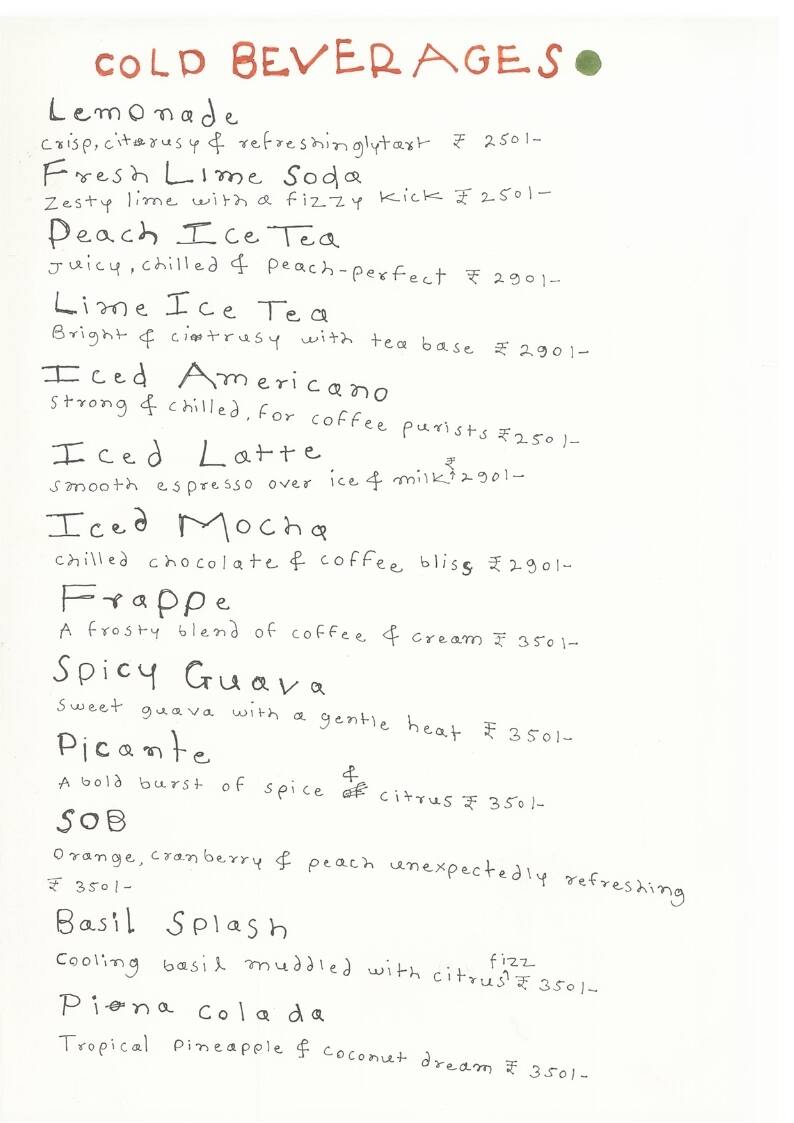 COLD BEVERAGES
Lemonade
Crisp, citrusy & refreshingly tart ₹ 250/-
Fresh Lime Soda
Zesty lime with a fizzy kick ₹ 250/-
Peach Ice Tea
Juicy, chilled & peach-perfect ₹ 290/-
Lime Ice Tea
Bright & citrusy with tea base ₹ 290/-
Iced Americano
Strong & chilled, for coffee purists ₹ 250/-
Iced Latte
Smooth espresso over ice & milk ₹ 290/-
Iced Mocha
Chilled chocolate & coffee bliss ₹ 290/-
Frappe
A frosty blend of coffee & cream ₹ 350/-
Spicy Guava
Sweet guava with a gentle heat ₹ 350/-
Picante
A bold burst of spice & citrus ₹ 350/-
SOB
Orange, cranberry & peach unexpectedly refreshing
₹ 350/-
Basil Splash
Cooling basil muddled with citrus fizz ₹ 350/-
Pina Colada
Tropical pineapple & coconut dream ₹ 350/-